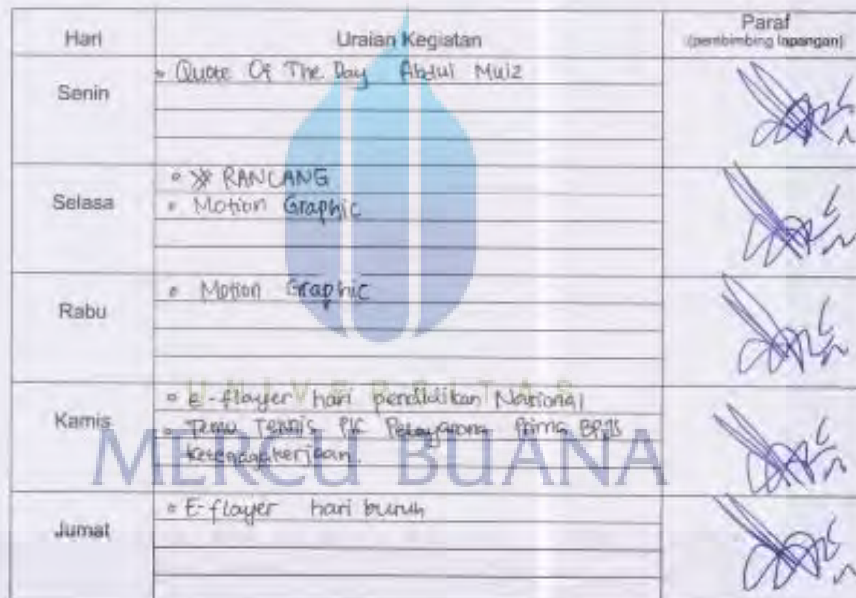 Hari Uraian Kegiatan Paraf
(pembimbing lapangan)
Senin
• Quote Of The Day Abdul Muiz
Selasa
• RANCANG
• Motion Graphic
Rabu
• Motion Graphic
Kamis
• E-flayer hari pendidikan Nasional
• Temu Teknis PIC Prima BPJS
Ketenagakerjaan.
Jumat
• E-flayer hari buruh
UNIVERSITAS
MERCU BUANA